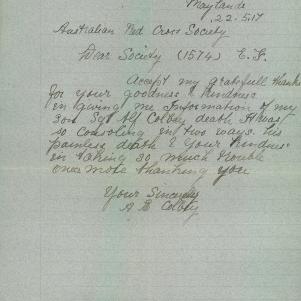 Maylands
22-5.17
Australian Red Cross Society
Dear Society (1574) E.F.
Accept my gratefull thanks
for your goodness & kindness
in giving me Information of my
son Sgt Alf Colbey death It was
so consoling in two ways. his
painless death & your kindness
in taking so much trouble
once more thanking you
Your Sincerely
A E Colbey